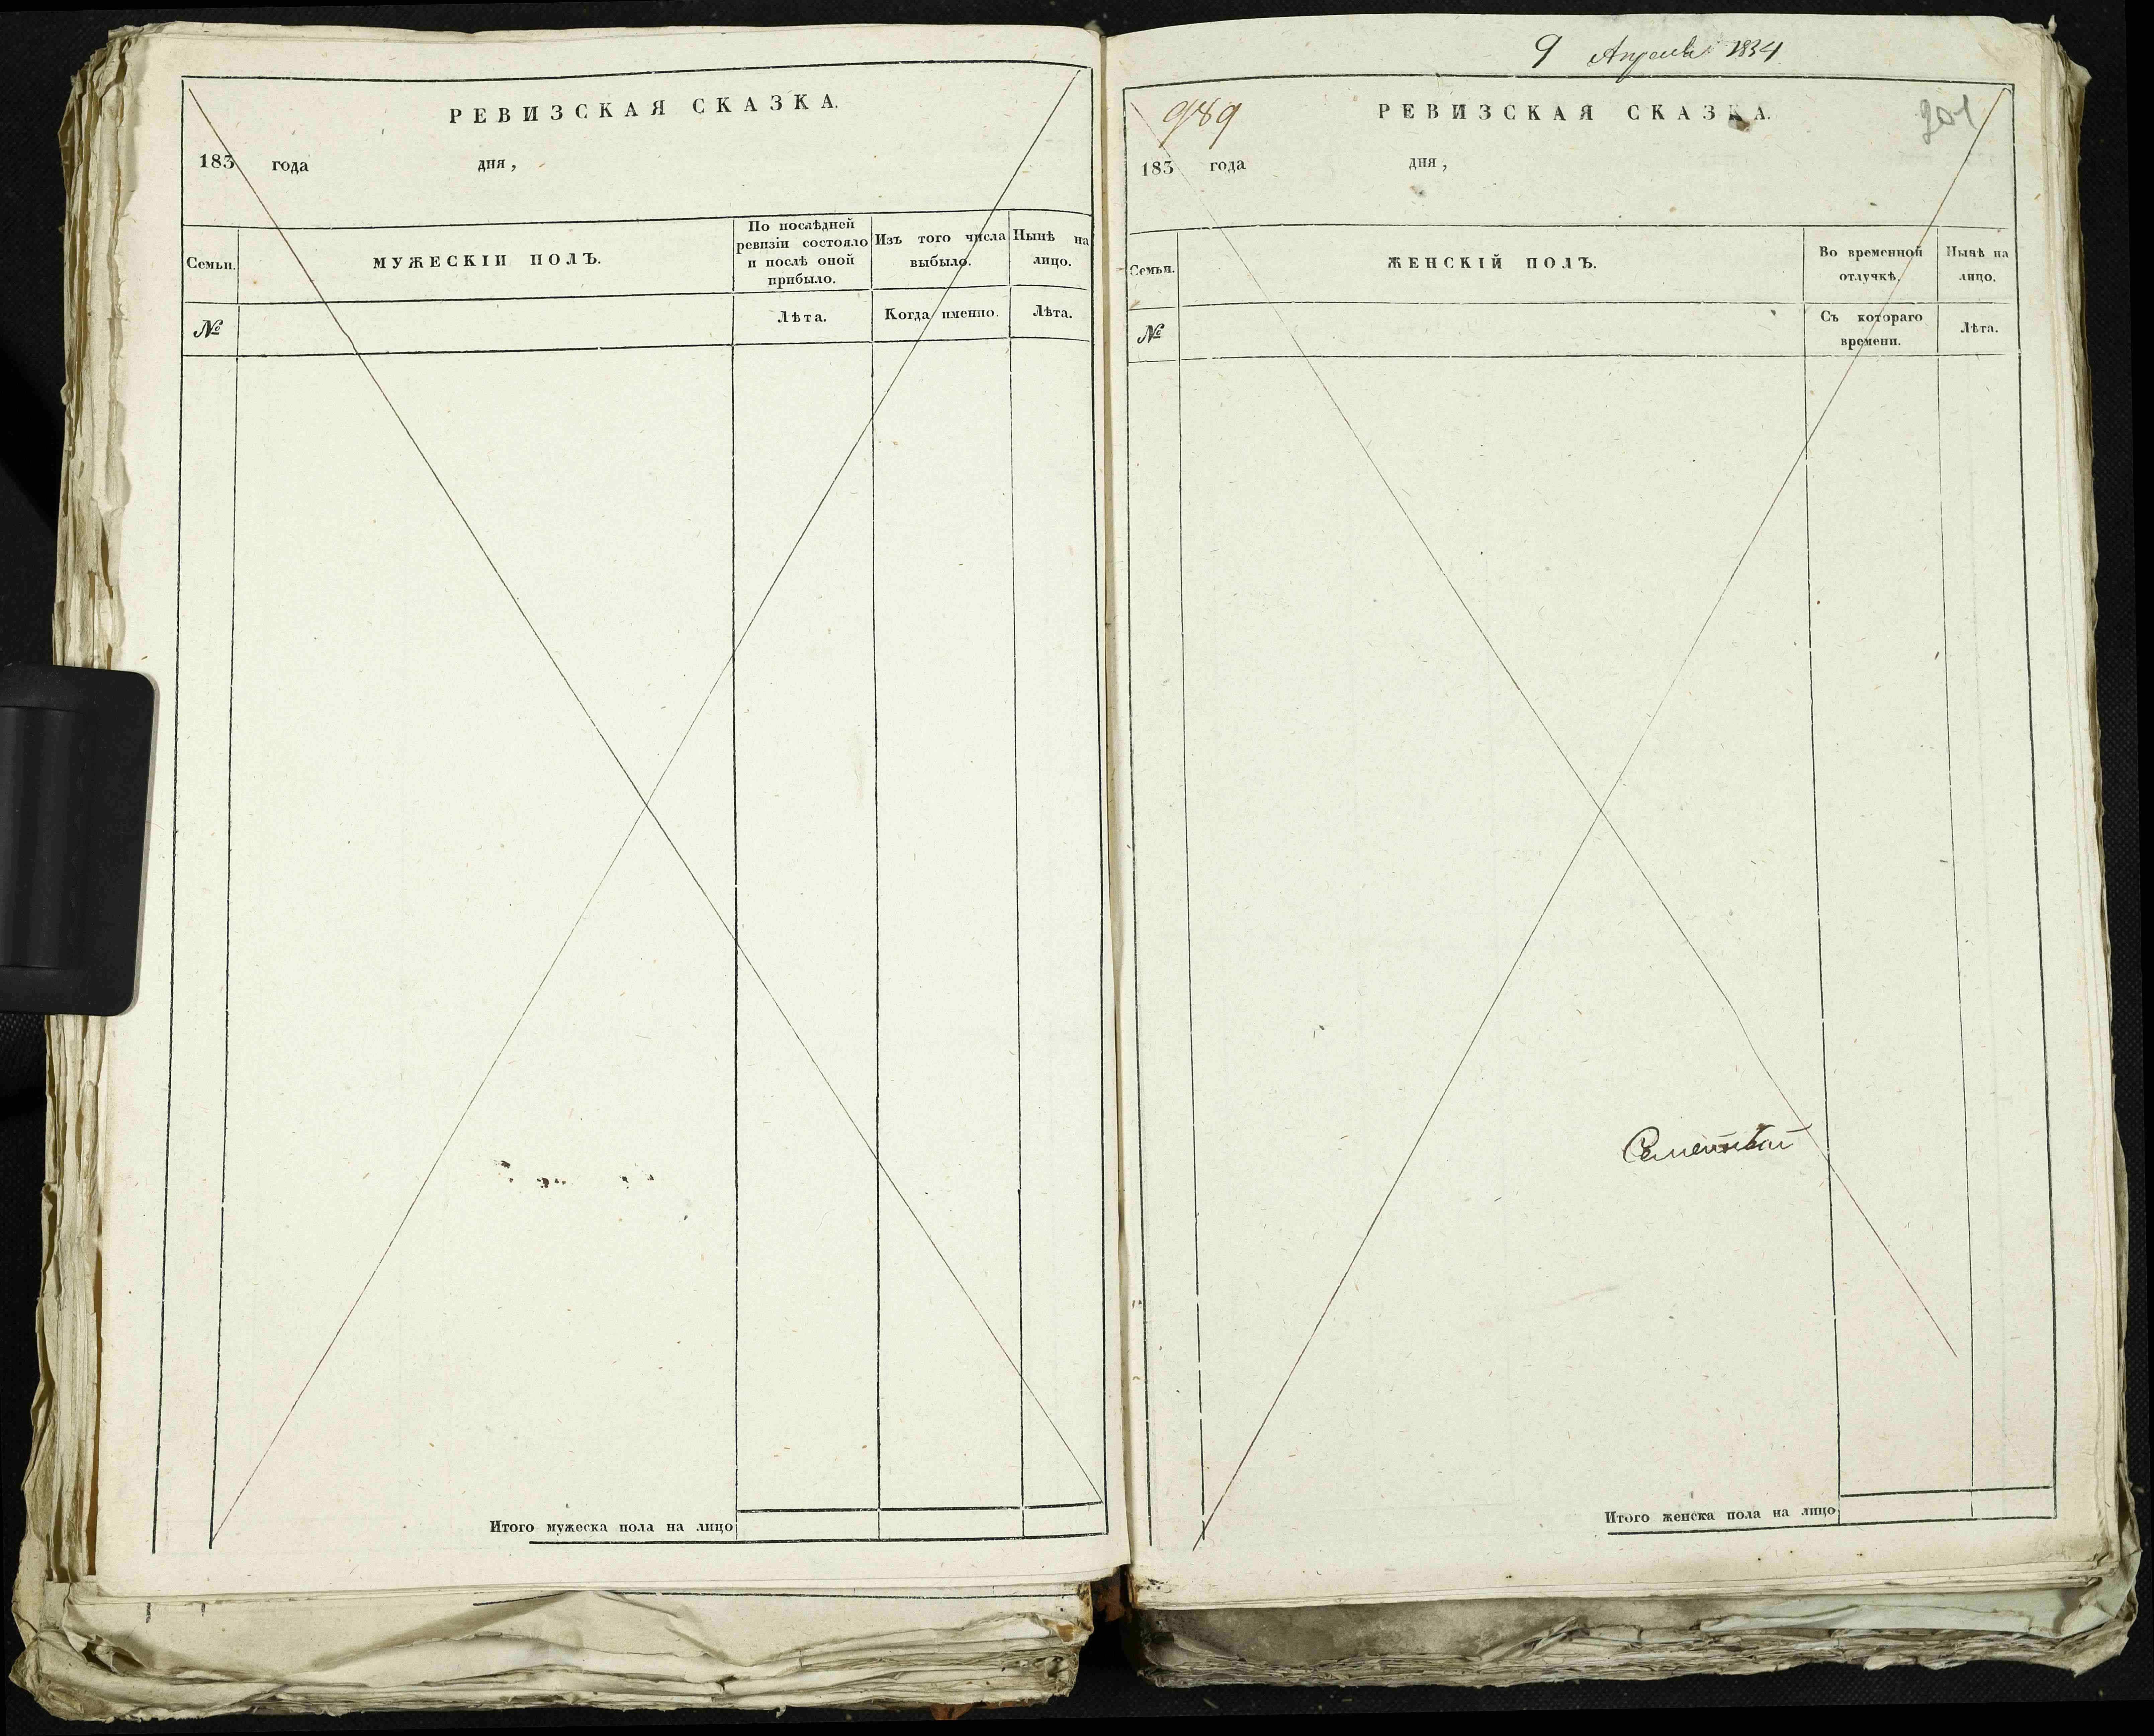 РЕВИЗСКАЯ СКАЗКА.
183 года дня,
Семьи.
МУЖЕСКІЙ ПОЛЪ.
По послѣдней
ревизіи состояло
и послѣ оной
прибыло.
Изъ того числа
выбыло.
Нынѣ на
лицо.
№
Лѣта.
Когда именно.
Лѣта.
Итого мужеска пола на лицо
9 Апреля 1834
989
РЕВИЗСКАЯ СКАЗКА.
201
183 года дня,
Семьи.
ЖЕНСКІЙ ПОЛЪ.
Во временной
отлучкѣ.
Нынѣ на
лицо.
№
Съ котораго
времени.
Лѣта.
Итого женска пола на лицо